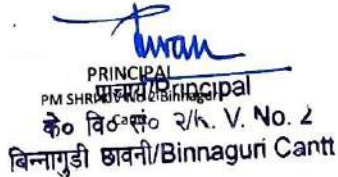 PRINCIPAL
प्राचार्य/Principal
PM SHRI KV No 2 Binnaguri
Cantt
के० वि० सं० २/K. V. No. 2
बिन्नागुडी छावनी/Binnaguri Cantt